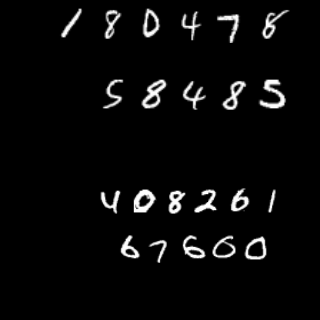 180478
58485
408261
67600